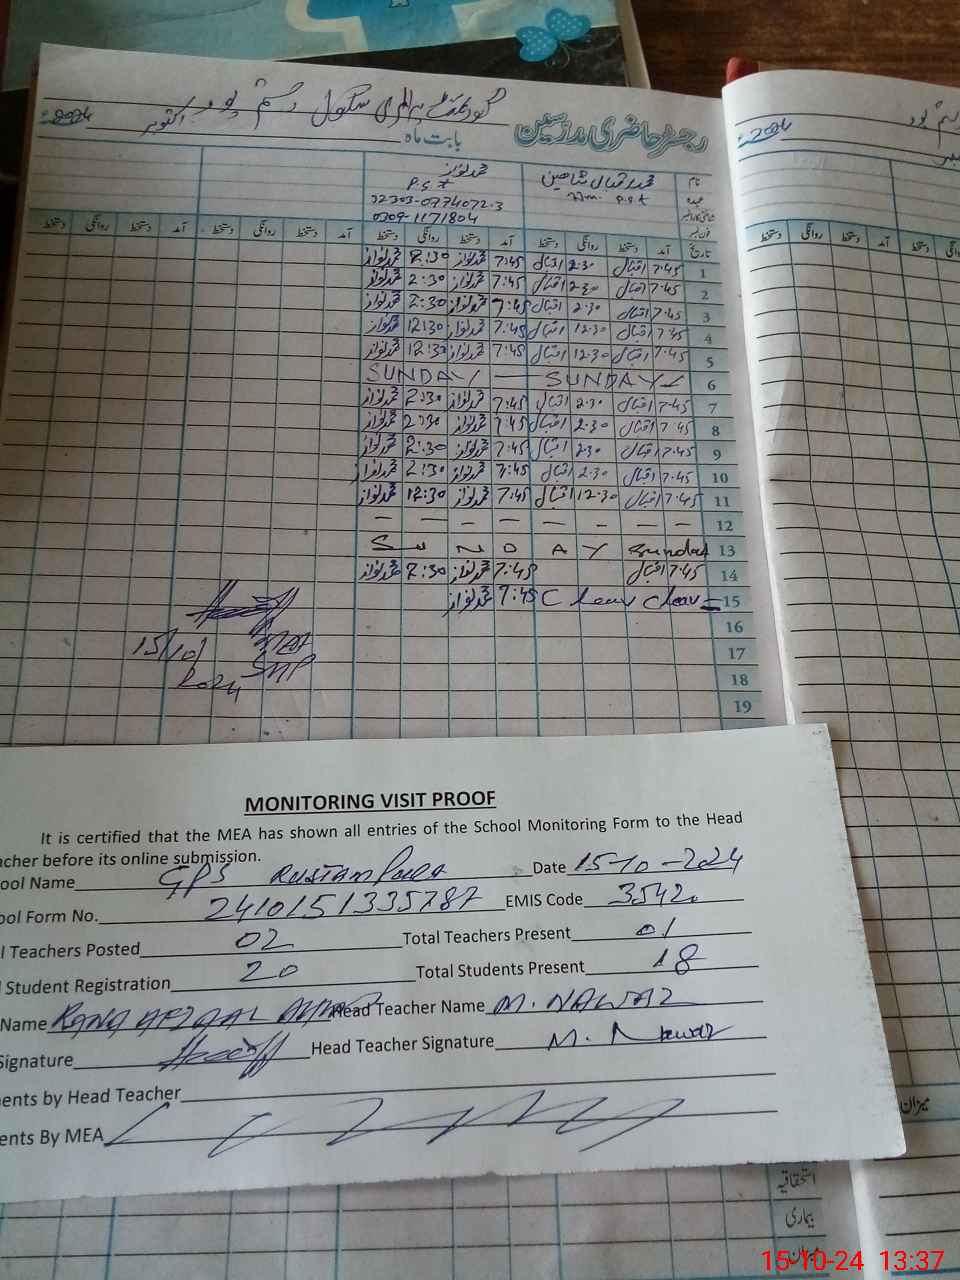 گورنمنٹ پرائمری سکول رستم پورہ
رجسٹر حاضری مدرسین
بابت ماہ اکتوبر 2024
نام محمد اقبال شاہین محمد نواز
عہدہ P.S.T P.S.T
32303-0774072-3
فون نمبر 0309-1171804
تاریخ آمد دستخط روانگی دستخط آمد دستخط روانگی دستخط آمد دستخط روانگی دستخط آمد دستخط روانگی دستخط
1 7.45 اقبال 2.30 اقبال 7:45 محمد نواز 2:30 محمد نواز
2 7.45 اقبال 2.30 اقبال 7:45 محمد نواز 2:30 محمد نواز
3 7.45 اقبال 2.30 اقبال 7:45 محمد نواز 2:30 محمد نواز
4 7.45 اقبال 12.30 اقبال 7:45 محمد نواز 12:30 محمد نواز
5 7.45 اقبال 12.30 اقبال 7:45 محمد نواز 12:30 محمد نواز
6 SUNDAY — SUNDAY
7 7.45 اقبال 2.30 اقبال 7:45 محمد نواز 2:30 محمد نواز
8 7.45 اقبال 2.30 اقبال 7:45 محمد نواز 2:30 محمد نواز
9 7.45 اقبال 2.30 اقبال 7:45 محمد نواز 2:30 محمد نواز
10 7.45 اقبال 2.30 اقبال 7:45 محمد نواز 2:30 محمد نواز
11 7.45 اقبال 12.30 اقبال 7:45 محمد نواز 12:30 محمد نواز
12 – – – – – – – –
13 SUNDAY Sunday
14 7.45 اقبال 7:45 محمد نواز 2:30 محمد نواز
15 C leav C leav 7:45 محمد نواز
16
17
18
19
15/10/
2024
MONITORING VISIT PROOF
It is certified that the MEA has shown all entries of the School Monitoring Form to the Head
acher before its online submission.
ool Name GPS Rustam Pura Date 15-10-2024
ool Form No. 2410151335787 EMIS Code
l Teachers Posted 02 Total Teachers Present 01
l Student Registration 20 Total Students Present 18
Name RANA AFZAAL Head Teacher Name M. NAWAZ
Signature Head Teacher Signature M. Nawaz
ents by Head Teacher
ents By MEA
میزان
استحقاقیہ
بیماری
میزان
15-10-24 13:37